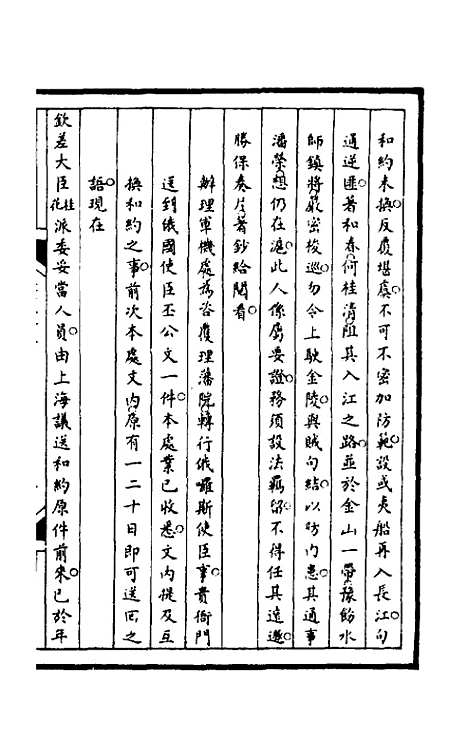 和約未換。反覆堪虞。不可不密加防範。設或夷船再入長江。勾
通逆匪。著和春何桂清阻其入江之路。並於金山一帶。豫飭水
師鎮將。嚴密梭巡。勿令上駛金陵。與賊勾結。以防內患。其通事
潘榮想仍在滬。此人係屬要證。務須設法羈留。不得任其遠遁。
勝保奏片。著鈔給閱看。
辦理軍機處為咨覆理藩院轉行俄囉斯使臣事。貴衙門
送到俄國使臣丕公文一件。本處業已收悉。文內提及互
換和約之事。前次本處文內。原有一二十日即可送囘之
語。現在
欽差大臣桂花派委妥當人員。由上海議送和約原件前來。已於年